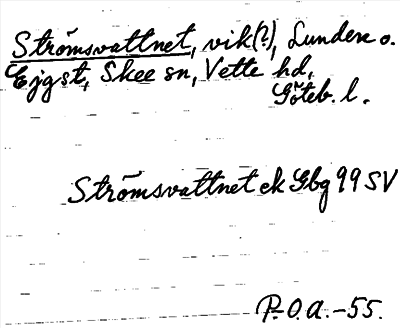 Strömsvattnet, vik(?), Lunden o.
Ejgst, Skee sn, Vette hd,
Göteb. l.
Strömsvattnet ek Gbg 99 SV
P.O.A. -55.